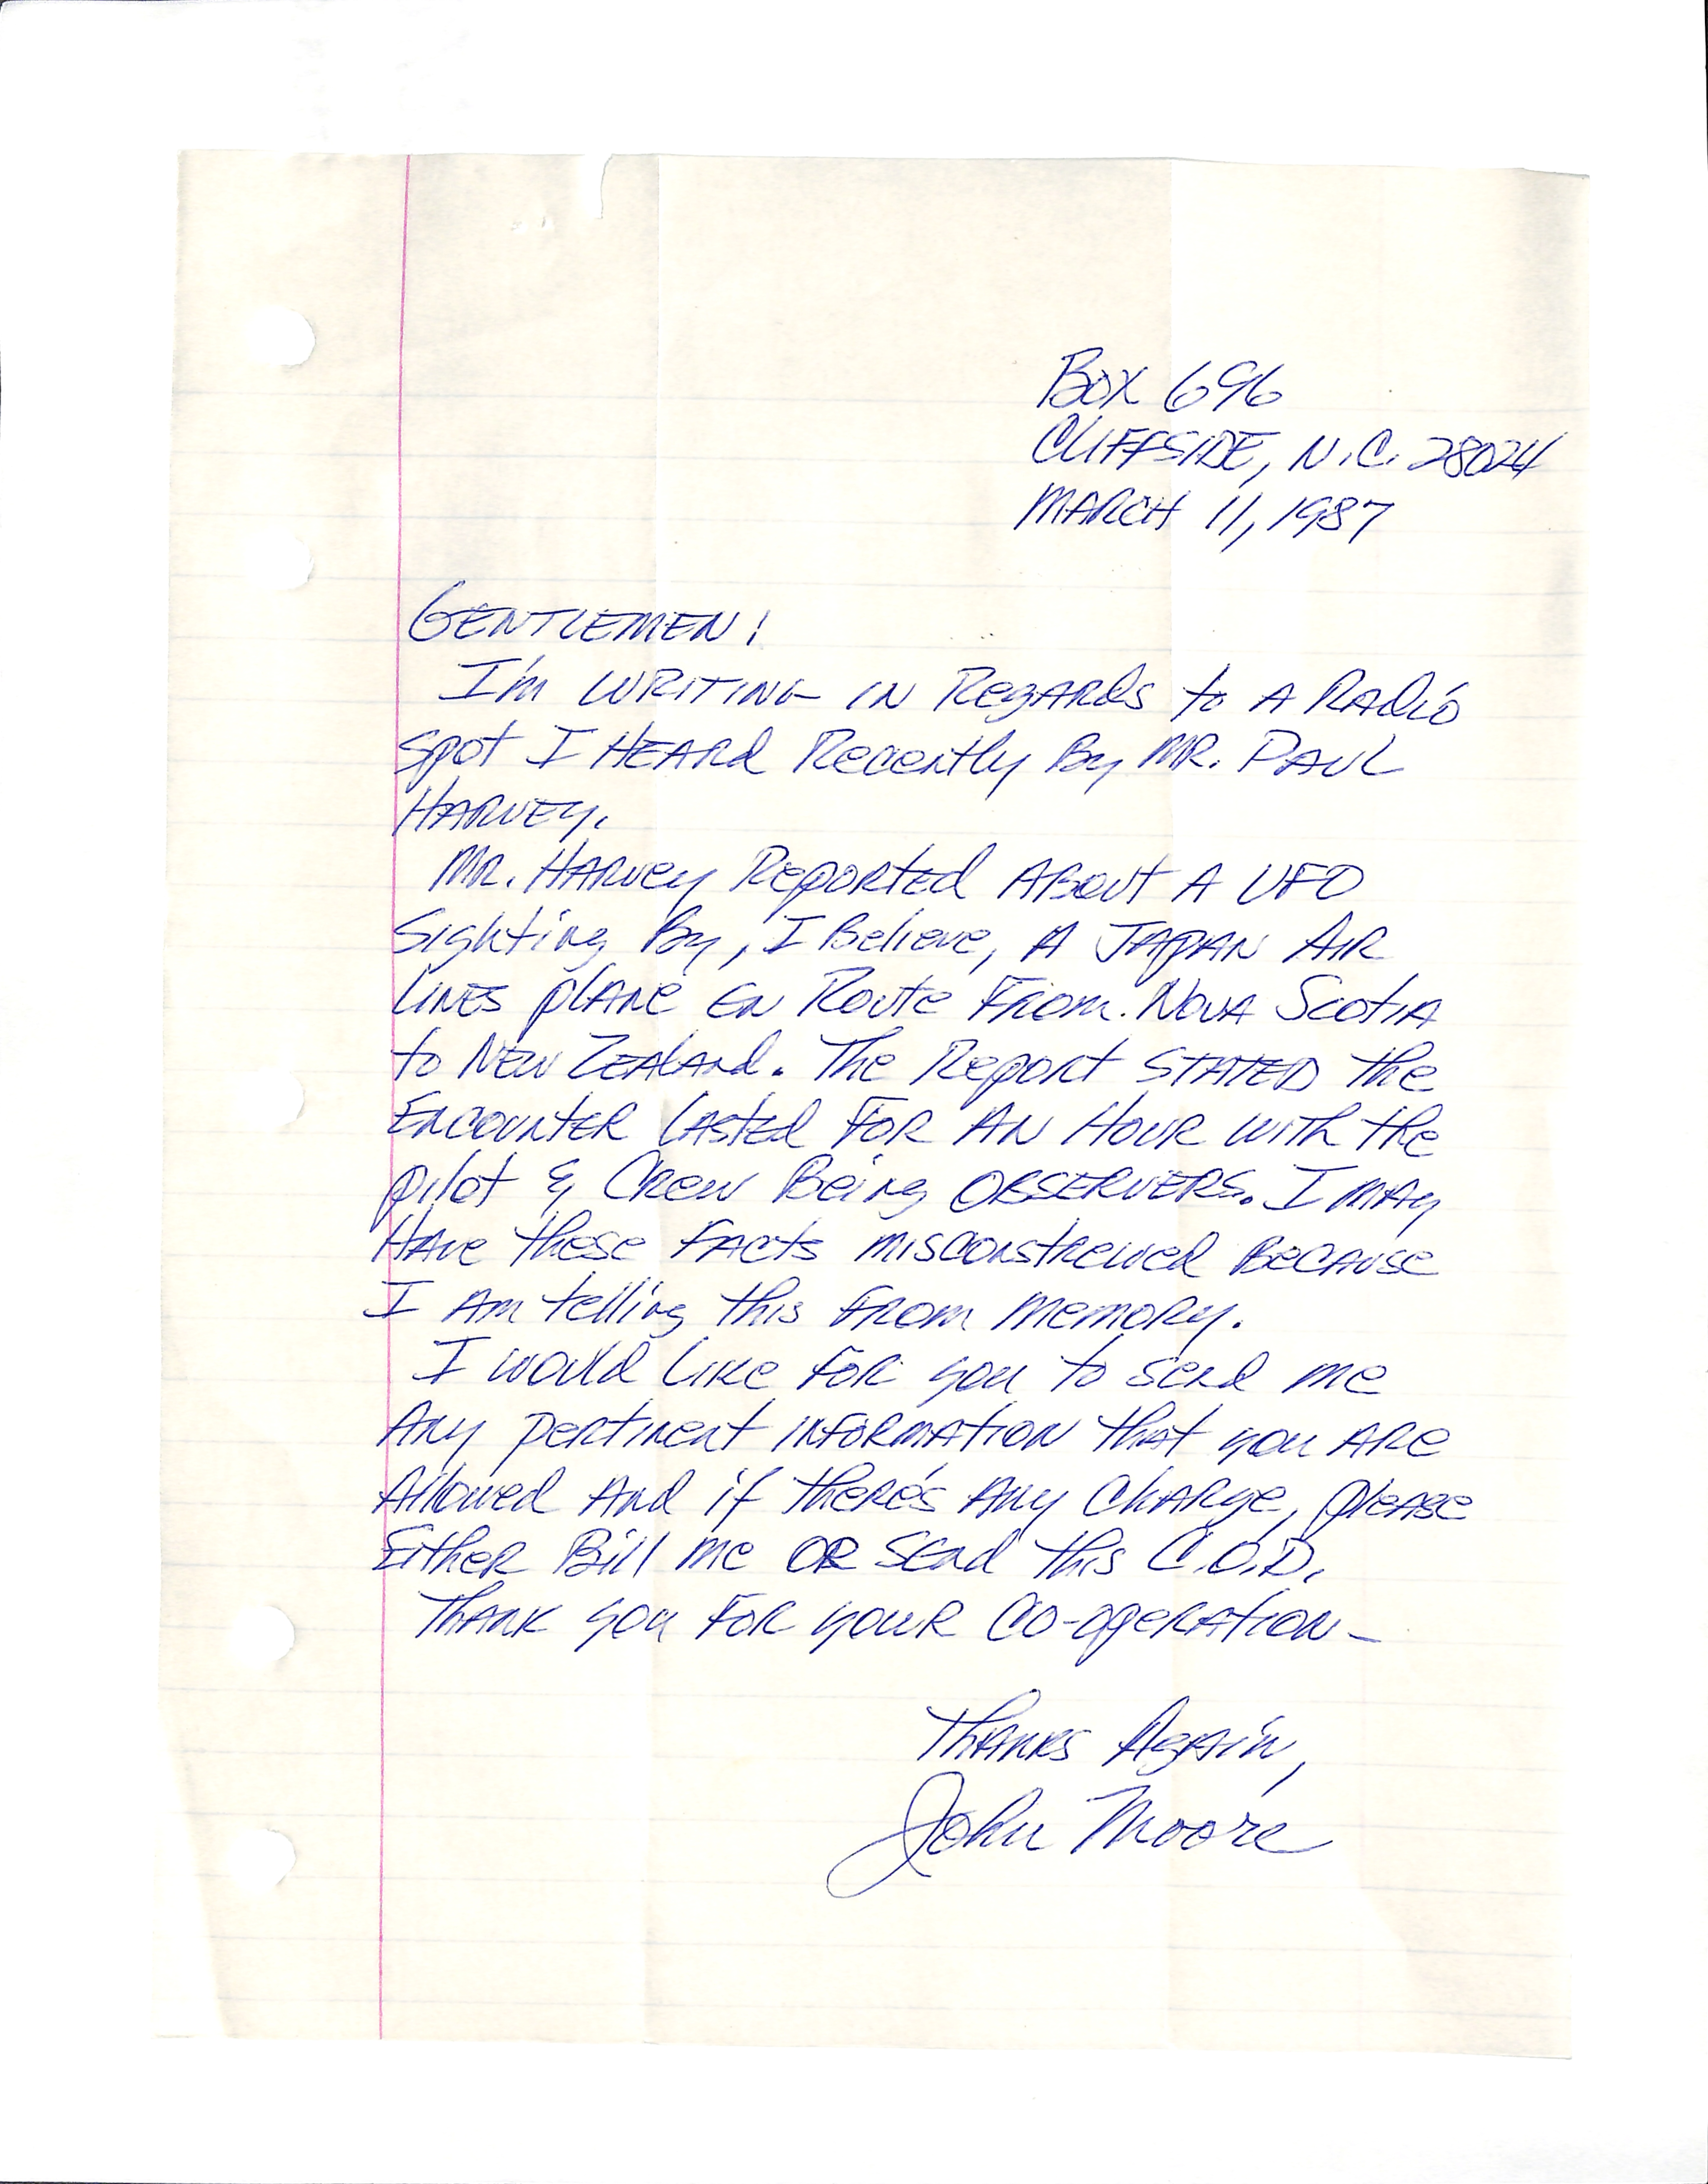 BOX 696
CLIFFSIDE, N.C. 28024
MARCH 11, 1987
GENTLEMEN!
I'm WRITING IN Regards to A Radio
spot I HEARd Recently By MR. PAUL
HARVEY.
MR. HARVey RepORTed ABout A UFO
Sighting By, I Believe, A JAPAN AIR
LINES plANe EN Route From Nova Scotia
to New ZEALANd. The Report STATED the
ENCOUNTER LASTed FOR AN HOUR with the
pilot & Crew Being OBSERVERS. I MAy
HAve these FActs misconstrewed Because
I Am telling this From Memory.
I would Like For you to send me
Any pertinent INFORMATION that you ARe
Allowed And if there's Any Charge, pleASe
Either Bill me OR SENd this C.O.D.
THANK you FOR youR CO-opeRATION-
THANKS AgAiN,
John Moore